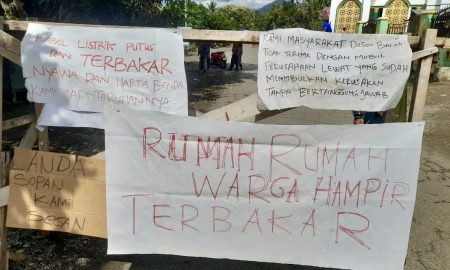 KABEL LISTRIK PUTUS
DAN TERBAKAR
NYAWA DAN HARTA BENDA
KAMI JADI TARUHANNYA
KAMI MASYARAKAT DUSUN
TIDAK TERIMA DENGAN MOBIL
PERUSAHAAN LEWAT YANG SUDAH
MENIMBULKAN KERUSAKAN
TANPA BERTANGGUNG JAWAB
ANDA
SOPAN
KAMI
SEGAN
RUMAH RUMAH
WARGA HAMPIR
TERBAKAR